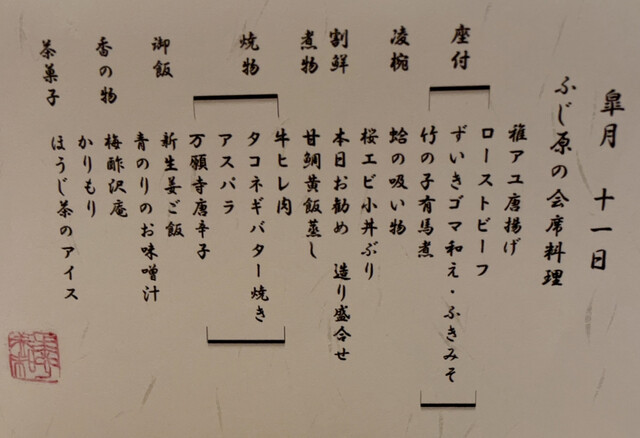 皐月　十一日
ふじ原の会席料理
座付
稚アユ唐揚げ
ローストビーフ
ずいきゴマ和え・ふきみそ
竹の子有馬煮
凌椀
蛤の吸い物
桜エビ小丼ぶり
割鮮
本日お勧め　造り盛合せ
煮物
甘鯛黄飯蒸し
焼物
牛ヒレ肉
タコネギバター焼き
アスパラ
万願寺唐辛子
御飯
新生姜ご飯
青のりのお味噌汁
香の物
梅酢沢庵
かりもり
茶菓子
ほうじ茶のアイス